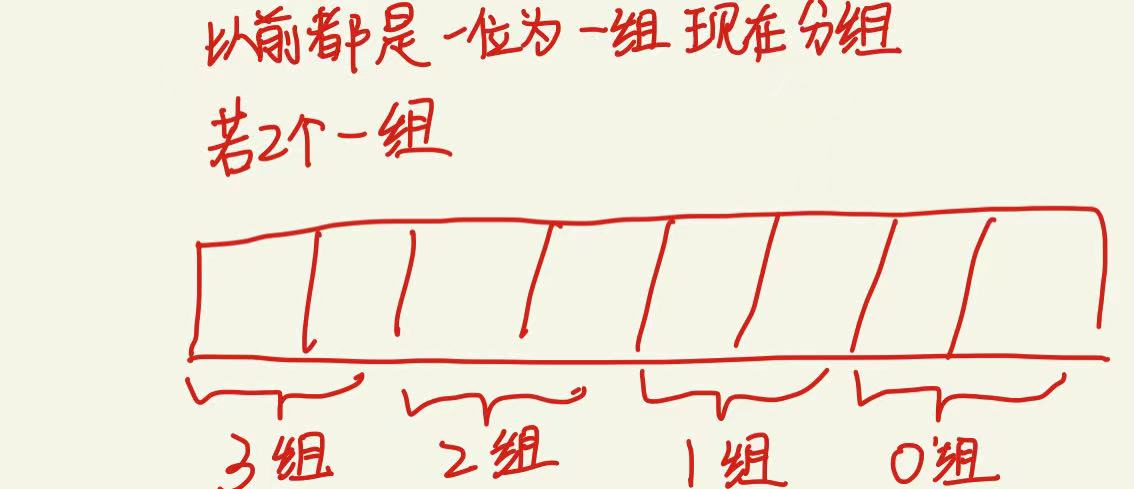 以前都是一位为一组 现在分组
若2个一组
3组 2组 1组 0组